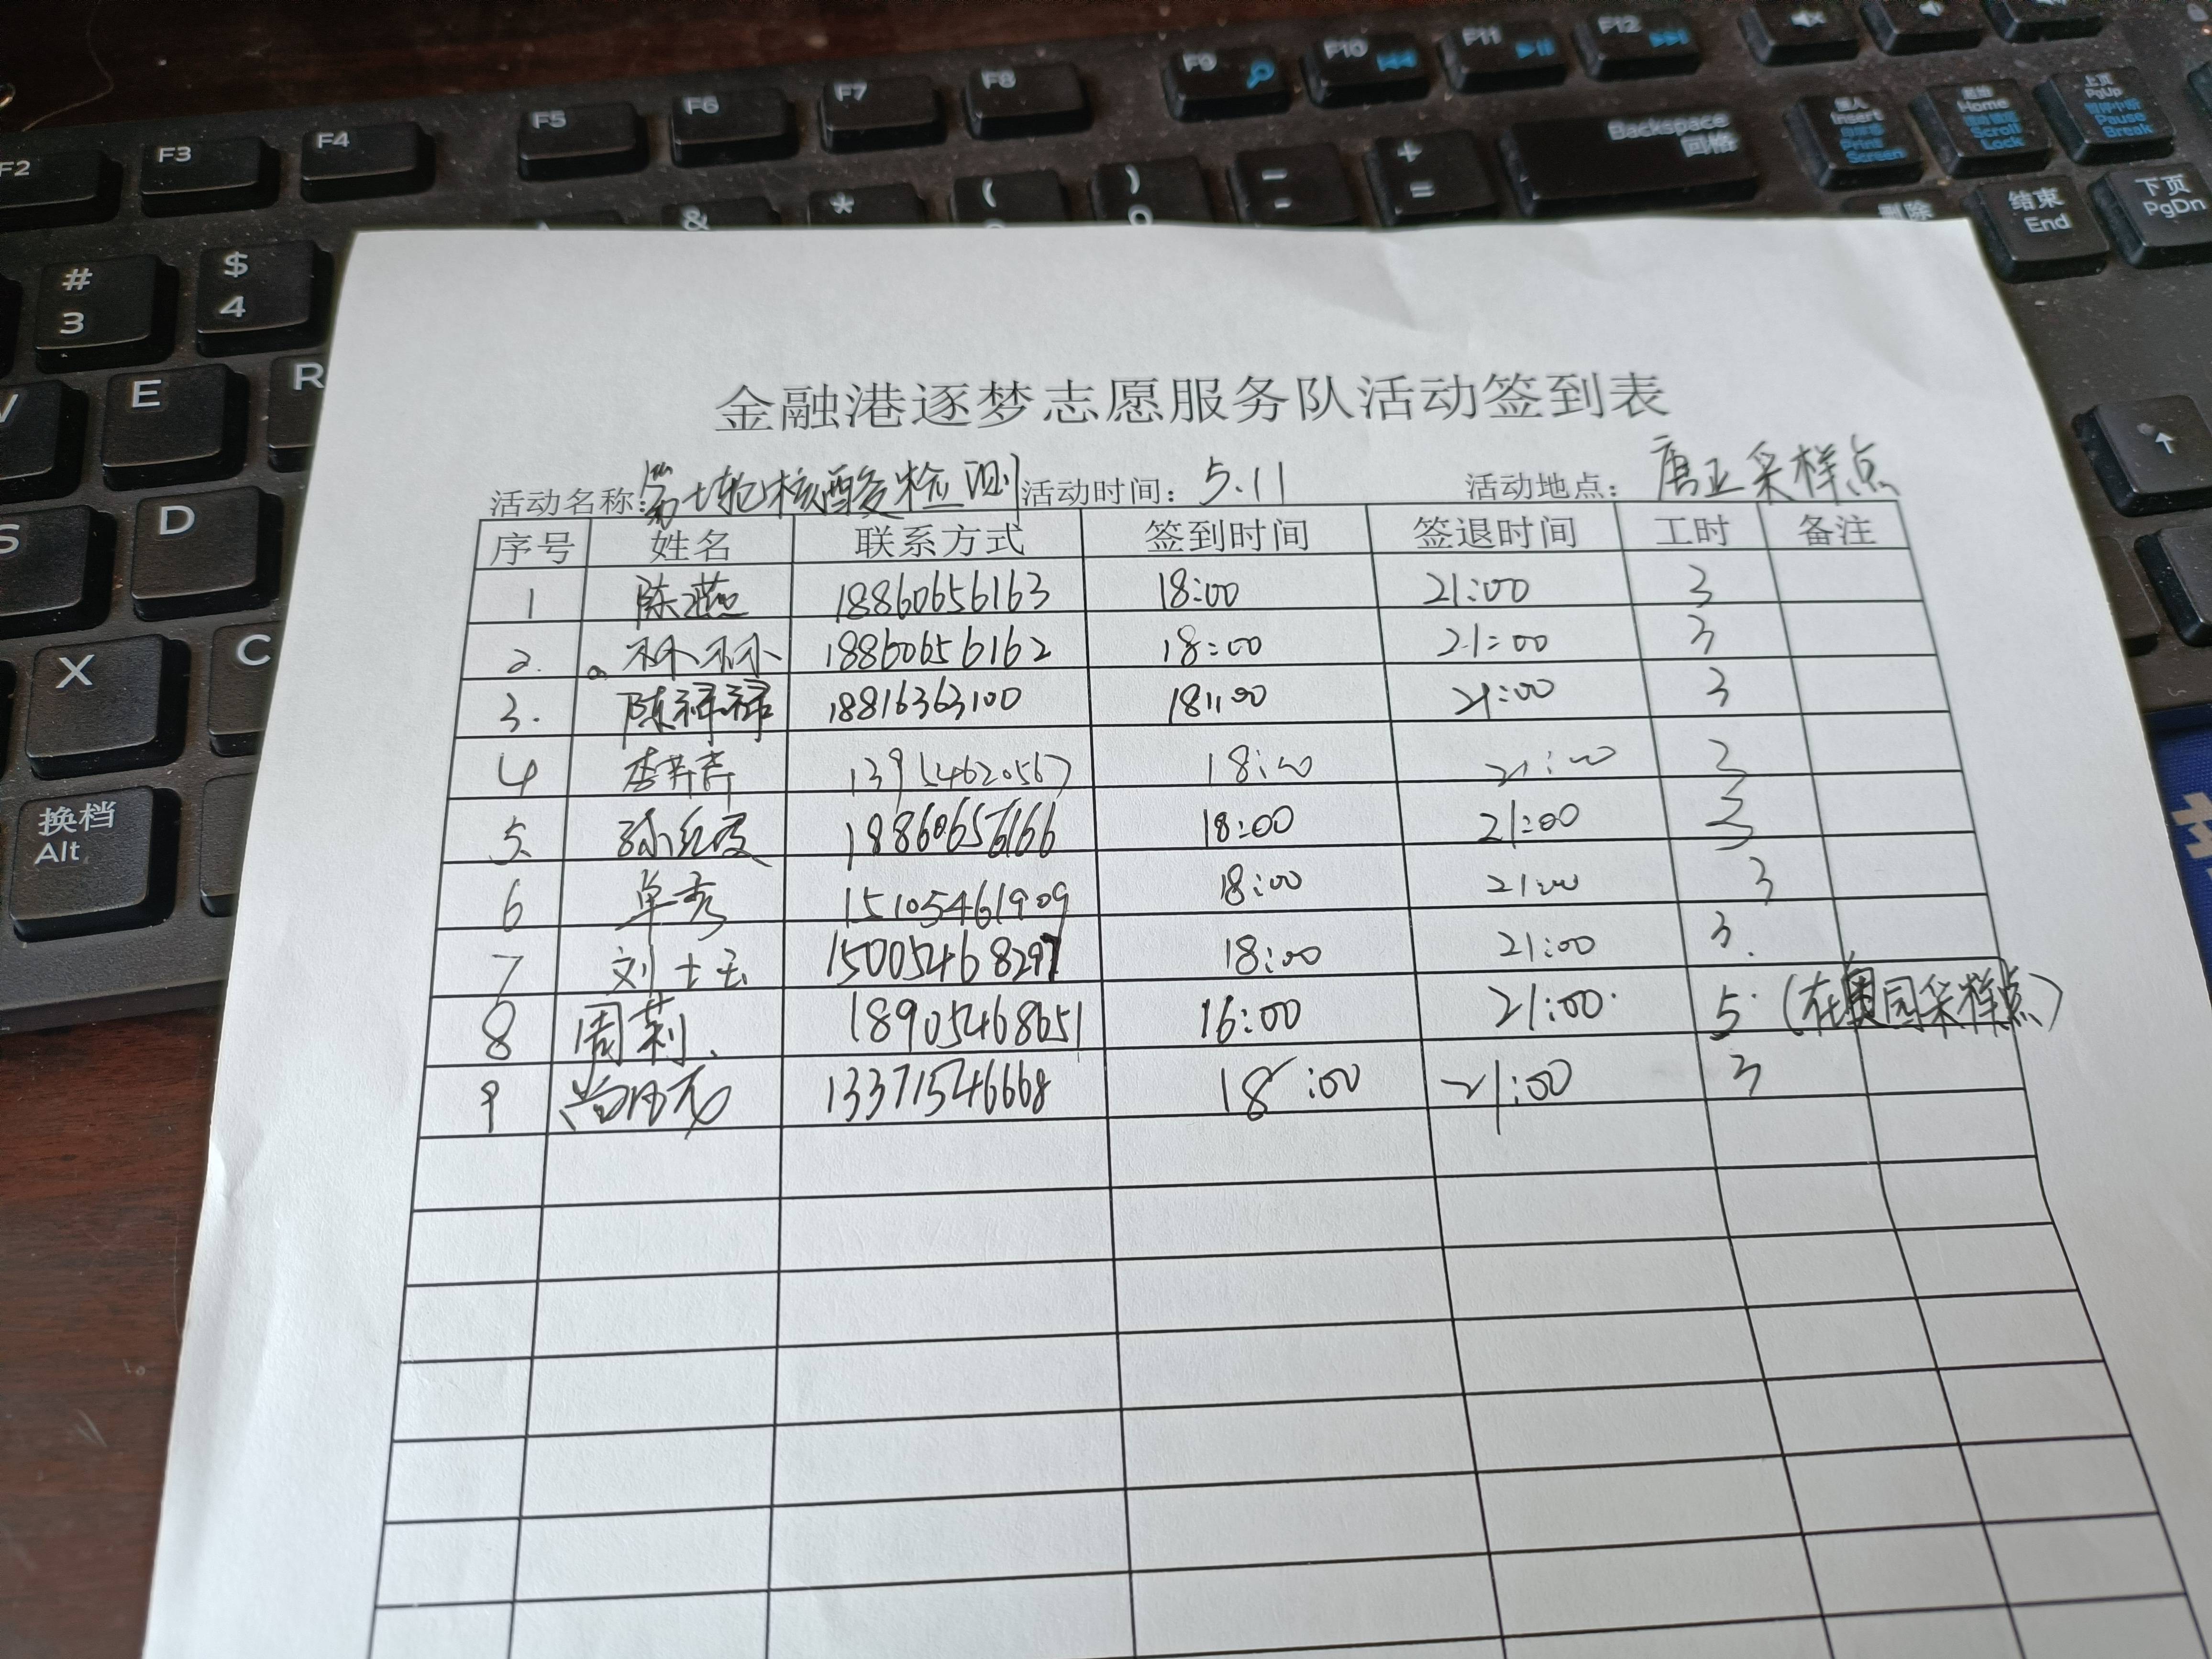 F2 F3 F4 F5 F6 F7 F8 F9 F10 F11 F12
# 3 $ 4 & * ( ) - _ + =
Backspace 回格
插入 Insert Print Screen
Home Scroll Lock
上页 PgUp Pause Break
删除 结束 End 下页 PgDn
E R S D X C
换档 Alt
金融港逐梦志愿服务队活动签到表
活动名称:第七轮核酸检测 活动时间: 5.11 活动地点: 唐正采样点
序号 姓名 联系方式 签到时间 签退时间 工时 备注
1 陈燕 18860656163 18:00 21:00 3
2. 18860656162 18:00 21:00 3
3. 陈禄禄 18816363100 18:00 21:00 3
4 13954620567 18:00 21:00 3
5 18860656166 18:00 21:00 3
6 单秀 15105461909 18:00 21:00 3
7 刘士玉 15005468297 18:00 21:00 3.
8 周莉 18905468651 16:00 21:00 5 (在奥园采样点)
9 13371546668 18:00 21:00 3